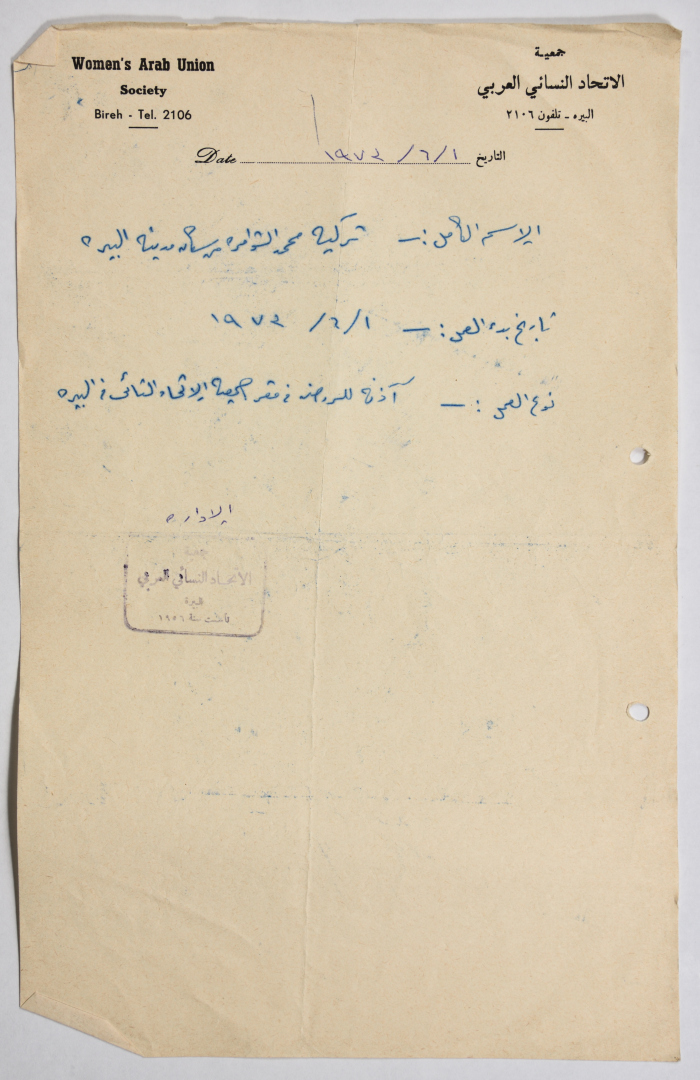 Women's Arab Union
Society
Bireh - Tel. 2106
جمعية
الاتحاد النسائي العربي
البيره - تلفون ٢١٠٦
Date ١ / ٦ / ١٩٧٣ التاريخ
الاسم الكامل :- تركيه محمد الشوامره من سكان مدينة البيره
تاريخ بدء العمل :- ١ / ٦ / ١٩٧٣
نوع العمل :- آذنه للروضه في مقر جمعية الاتحاد النسائي في البيره
الاداره
جمعية
الاتحاد النسائي العربي
البيرة
تأسست سنة ١٩٥٦